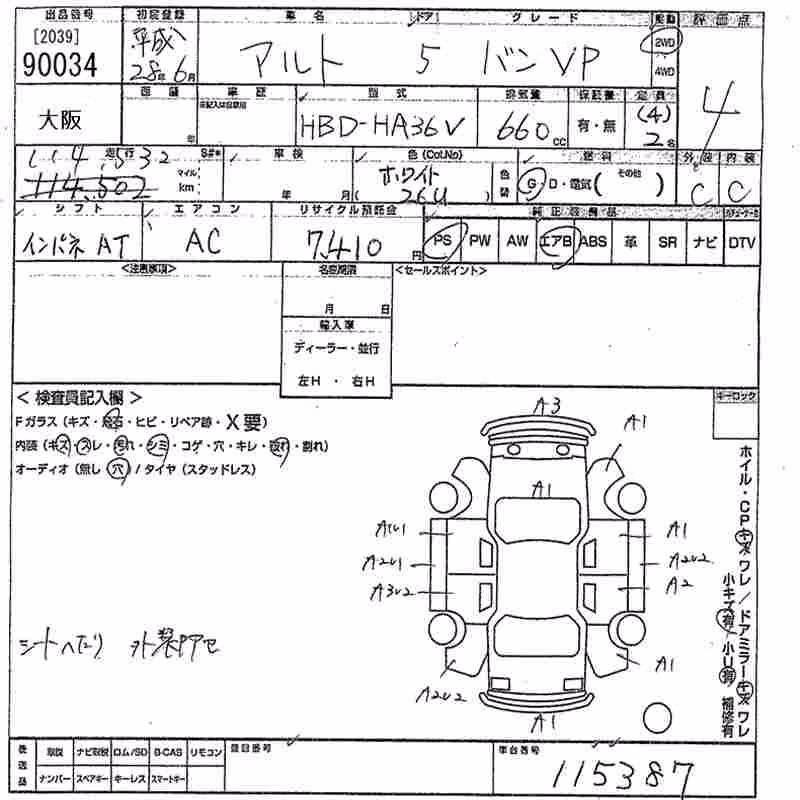 出品番号 初度登録 車名 ドア グレード 駆動 評価点
[2039] 平成
90034 28年6月 アルト 5 バンVP 2WD 4
4WD
大阪 車歴 型式 排気量 保証書 定員
年 HBD-HA36V 660cc 有・無 (4) 2名
走行 車検 色(Col.No) 燃料 外装 内装
114,532 マイル ホワイト 色替 G・D・電気( その他 ) C C
114,502 km 年 月( 26U )
シフト エアコン リサイクル預託金 純正装備品
インパネ AT AC 7,410円 PS PW AW エアB ABS 革 SR ナビ DTV
<注意事項> 名変期限 <セールスポイント>
月 日
輸入車
ディーラー・並行
左H ・ 右H
<検査員記入欄> キーロック
Fガラス(キズ・飛石・ヒビ・リペア跡・X要)
内装(キズ・スレ・汚れ・シミ・コゲ・穴・キレ・取れ・割れ)
オーディオ(無し・穴)/タイヤ(スタッドレス)
A3
A1
A1
A1U1 A1
A2U1 A2U2
A3U2 A2
A1
A2U2
A1
シートへたり 外装Pアセ
ホイル・CPキズワレ/ドアミラーキズワレ
小キズ有/小U有/補修有
後送品 取説 ナビ取説 ロム/SD B-CAS リモコン 登録番号 車台番号
ナンバー スペアキー キーレス スマートキー 115387